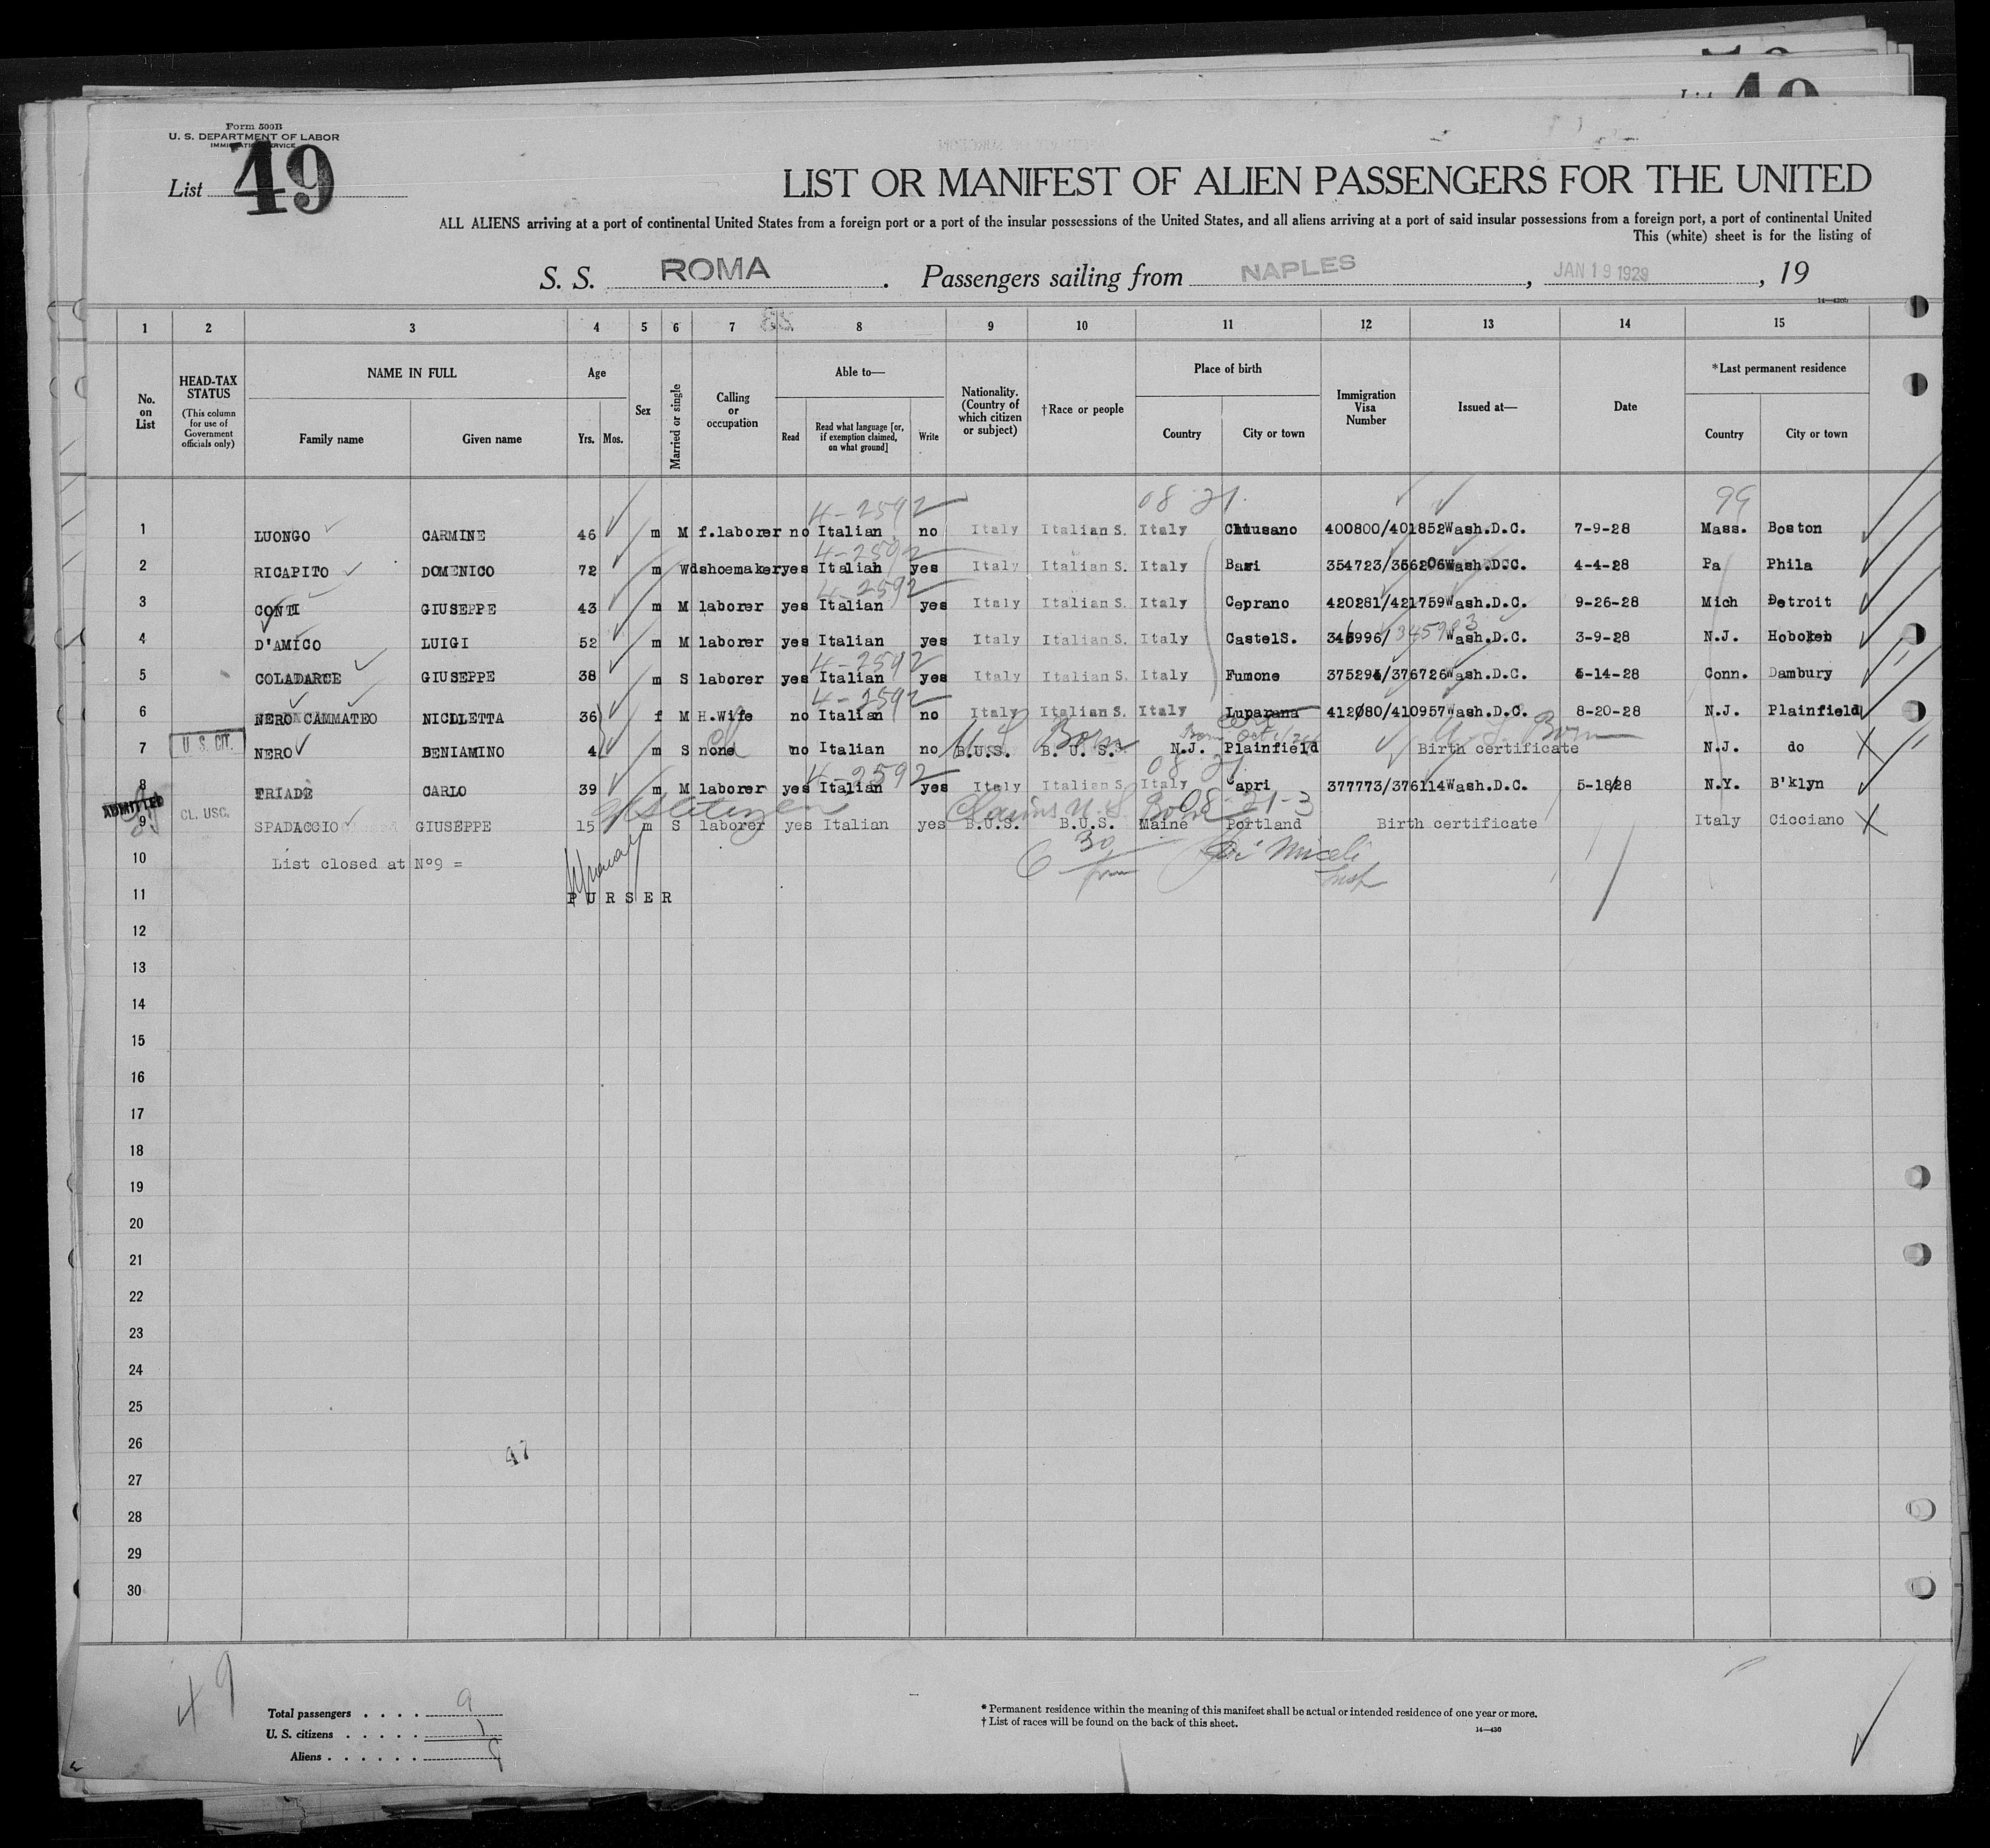 Form 500B
U. S. DEPARTMENT OF LABOR
IMMIGRATION SERVICE
List 49
LIST OR MANIFEST OF ALIEN PASSENGERS FOR THE UNITED
ALL ALIENS arriving at a port of continental United States from a foreign port or a port of the insular possessions of the United States, and all aliens arriving at a port of said insular possessions from a foreign port, a port of continental United
This (white) sheet is for the listing of
S. S. ROMA . Passengers sailing from NAPLES , JAN 19 1929 , 19
14—430b
1 2 3 4 5 6 7 8 9 10 11 12 13 14 15
No. on List
HEAD-TAX STATUS
(This column for use of Government officials only)
NAME IN FULL
Family name Given name
Age
Yrs. Mos.
Sex
Married or single
Calling or occupation
Able to—
Read
Read what language [or, if exemption claimed, on what ground]
Write
Nationality. (Country of which citizen or subject)
†Race or people
Place of birth
Country City or town
Immigration Visa Number
Issued at—
Date
*Last permanent residence
Country City or town
4-2592 08-21 99
1 LUONGO CARMINE 46 m M f.laborer no Italian no Italy Italian S. Italy Chiusano 400800/401852 Wash.D.C. 7-9-28 Mass. Boston
4-2592
2 RICAPITO DOMENICO 72 m Wd shoemaker yes Italian yes Italy Italian S. Italy Bari 354723/356206 Wash.D.C. 4-4-28 Pa Phila
4-2592
3 CONTI GIUSEPPE 43 m M laborer yes Italian yes Italy Italian S. Italy Ceprano 420281/421759 Wash.D.C. 9-26-28 Mich Detroit
4 D'AMICO LUIGI 52 m M laborer yes Italian yes Italy Italian S. Italy CastelS. 346996/ 345983 Wash.D.C. 3-9-28 N.J. Hoboken
4-2592
5 COLADARCE GIUSEPPE 38 m S laborer yes Italian yes Italy Italian S. Italy Fumone 375294/376726 Wash.D.C. 5-14-28 Conn. Dambury
4-2592
6 NERO CAMMATEO NICOLETTA 36 f M H.Wife no Italian no Italy Italian S. Italy Luparana 412080/410957 Wash.D.C. 8-20-28 N.J. Plainfield
U. S. Born Born Oct U. S. Born
7 U. S. CIT. NERO BENIAMINO 4 m S none no Italian no B.U.S. B. U. S. N.J. Plainfield Birth certificate N.J. do
4-2592 08-21
8 TRIADE CARLO 39 m M laborer yes Italian yes Italy Italian S. Italy Capri 377773/376114 Wash.D.C. 5-18/28 N.Y. B'klyn
ADMITTED US citizen Claims U. S. Born 08-21-3
9 CL. USC. SPADACCIO GIUSEPPE 15 m S laborer yes Italian yes B.U.S. B.U.S. Maine Portland Birth certificate Italy Cicciano
10 List closed at N°9 =
6 30 pm Miceli Insp
11 PURSER
12
13
14
15
16
17
18
19
20
21
22
23
24
25
26
47
27
28
29
30
49
Total passengers . . . . 9
U. S. citizens . . . . . 1
Aliens . . . . . . 8
* Permanent residence within the meaning of this manifest shall be actual or intended residence of one year or more.
† List of races will be found on the back of this sheet.
14—430